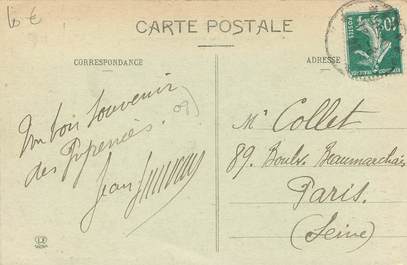 16 €
CARTE POSTALE
CORRESPONDANCE
ADRESSE
Un bon souvenir
des Pyrenées.
Jean
09
Mr Collet
89. Boulev. Beaumarchais
Paris.
(Seine)